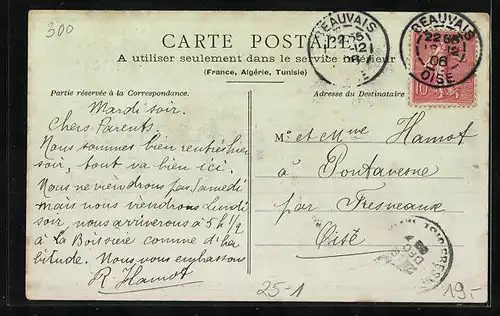 300
CARTE POSTALE
A utiliser seulement dans le service intérieur
(France, Algérie, Tunisie)
Partie réservée à la Correspondance.
Adresse du Destinataire
BEAUVAIS
12
OISE
BEAUVAIS
22
12
06
OISE
10
Mardi soir.
Chers Parents
Nous sommes bien rentrés hier
soir, tout va bien ici.
Nous ne viendrons pas Samedi
mais nous viendrons Lundi
soir, nous arriverons à 5h 1/2
à La Boissière comme d'ha
bitude. Nous vous embrassons
R. Hamot
Mr et Mme Hamot
à Pontavesne
par Fresneaux
Oise
25-1
19.-